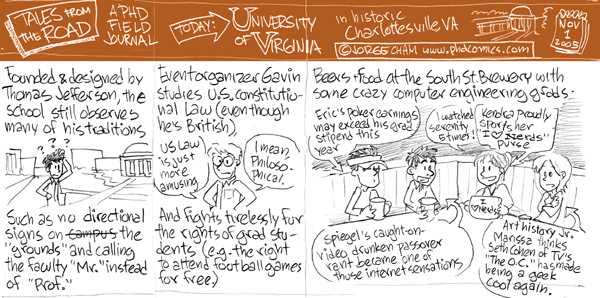 TALES FROM THE ROAD
A PHD
FIELD
JOURNAL
TODAY:
UNIVERSITY
OF VIRGINIA
in historic
Charlottesville, VA
© JORGE CHAM www.phdcomics.com
NOV
1
2005
Founded & designed by
Thomas Jefferson, the
school still observes
many of his traditions
? ? ?
Such as no directional
signs on campus the
"grounds" and calling
the faculty "Mr." instead
of "Prof."
Event organizer Gavin
studies U.S. constitutio-
nal Law (even though
he's British)
US Law
is just
more
amusing
I mean,
Philoso-
phical.
And fights tirelessly for
the rights of grad stu-
dents (e.g. the right
to attend football games
for free.)
Beers + food at the South St. Brewery with
some crazy computer engineering grads-
Eric's poker earnings
may exceed his grad
stipend this
year
I watched
serenity
5 times!
Kendra proudly
sports her
"I ♡ Nerds"
Purse
I ♡ Nerds
Spiegel's caught-on-
video drunken passover
rant became one of
those internet sensations
Art history Jr.
Marissa thinks
Seth Cohen of TV's
"The O.C." has made
being a geek
cool again.